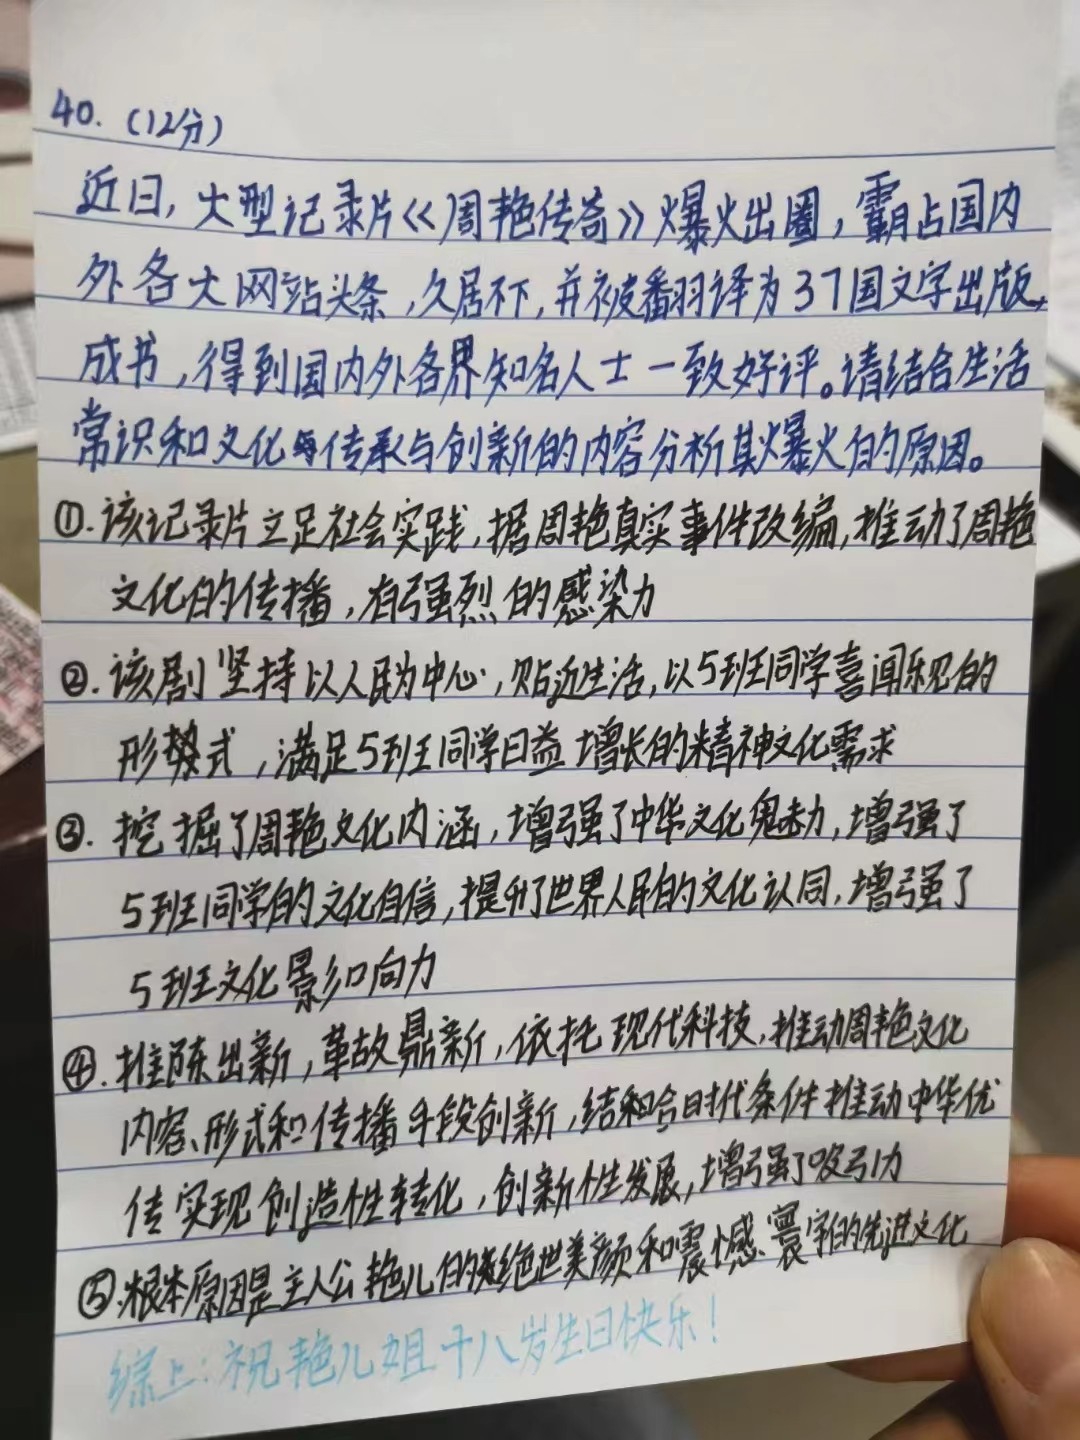 40.（12分）
近日，大型记录片《周艳传奇》爆火出圈，霸占国内
外各大网站头条，久居不下，并被翻译为37国文字出版
成书，得到国内外各界知名人士一致好评。请结合生活
常识和文化传承与创新的内容分析其爆火的原因。
①.该记录片立足社会实践，据周艳真实事件改编，推动了周艳
文化的传播，有强烈的感染力
②.该剧坚持以人民为中心，贴近生活，以5班同学喜闻乐见的
形式，满足5班同学日益增长的精神文化需求
③.挖掘了周艳文化内涵，增强了中华文化魅力，增强了
5班同学的文化自信，提升了世界人民的文化认同，增强了
5班文化影响力
④.推陈出新，革故鼎新，依托现代科技，推动周艳文化
内容、形式和传播手段创新，结合时代条件推动中华优
传实现创造性转化，创新性发展，增强了吸引力
⑤.根本原因是主人公艳儿的绝世美颜和震憾寰宇的先进文化
综上：祝艳儿姐十八岁生日快乐！